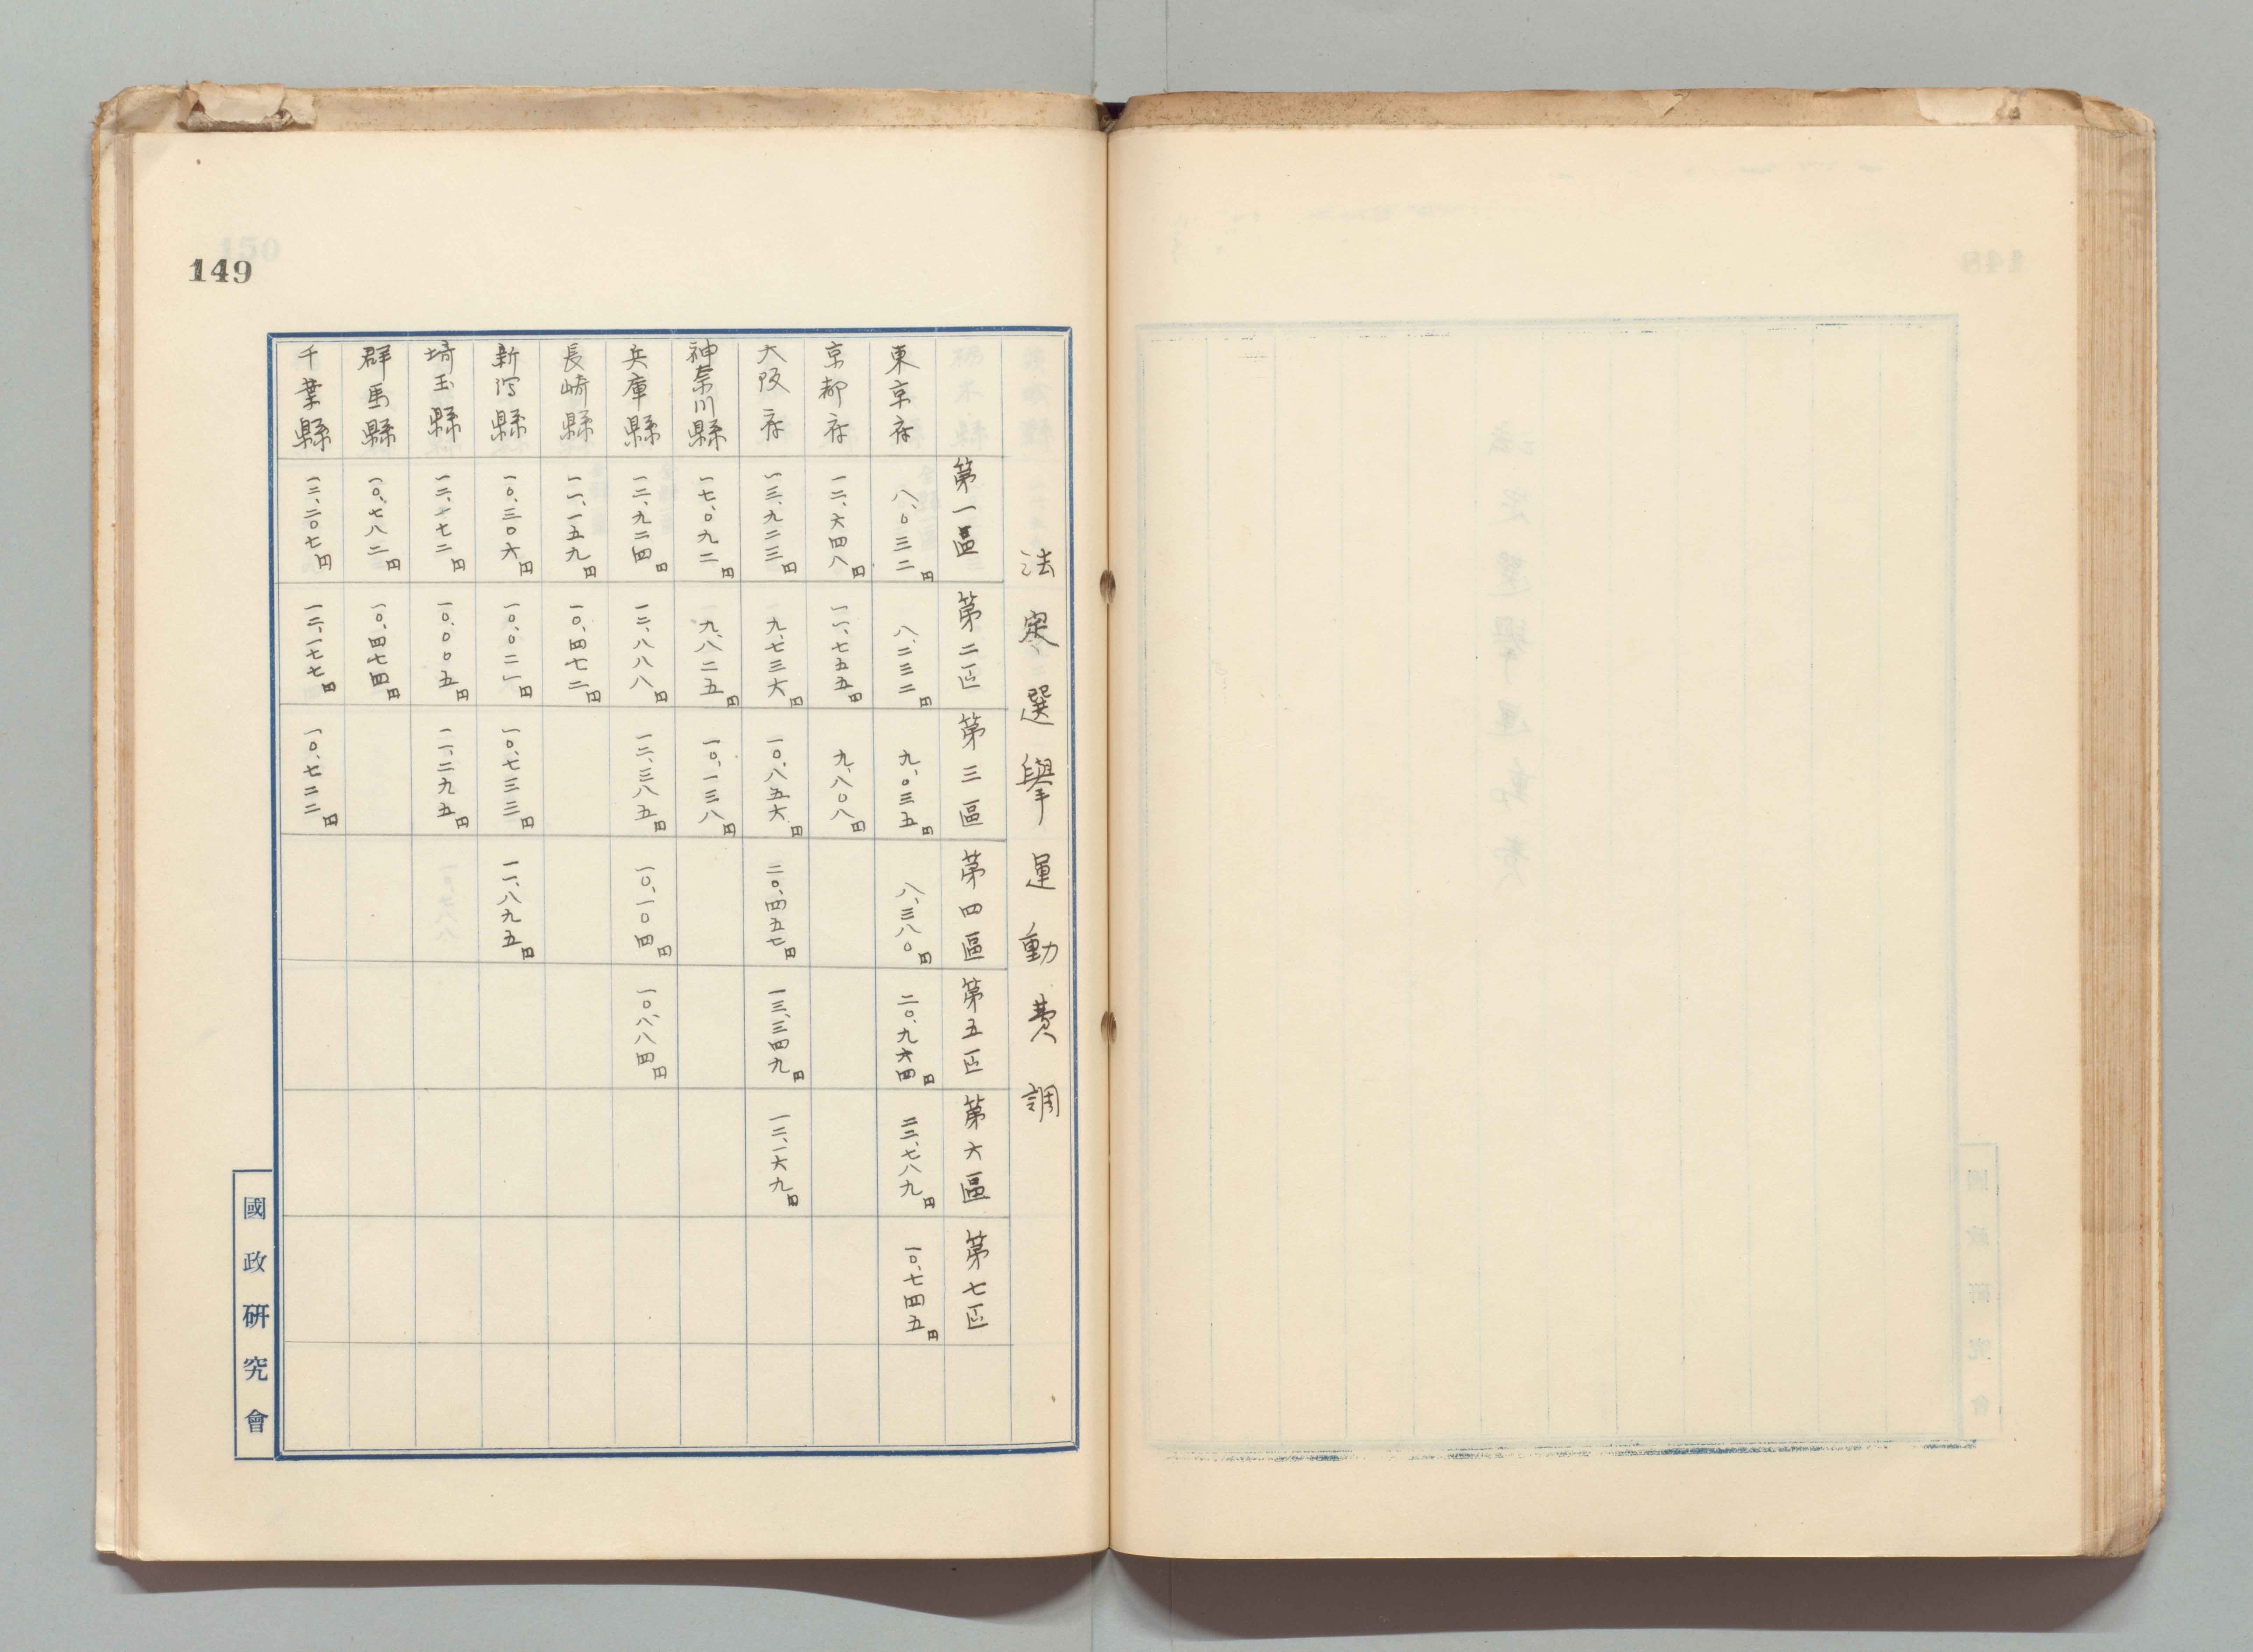 149
法定選擧運動費調
第一區 第二区 第三區 第四區 第五区 第六區 第七区
東京府 八、〇三二円 八、二三二円 九、〇三五円 八、三八〇円 二〇、九六四円 二三、七八九円 一〇、七四五円
京都府 一二、六四八円 一一、七五五円 九、八〇八円
大阪府 一三、九二三円 九、七三六円 一〇、八五六円 二〇、四五七円 一三、三四九円 一二、一六九円
神奈川縣 一七、〇九二円 九、八二五円 一〇、一三八円
兵庫縣 一二、九二四円 一二、八八八円 一二、三八五円 一〇、一〇四円 一〇、八八四円
長崎縣 一一、一五九円 一〇、四七二円
新潟縣 一〇、三〇六円 一〇、〇二一円 一〇、七三三円 一一、八九五円
埼玉縣 一二、一七二円 一〇、〇〇五円 一一、二九五円
群馬縣 一〇、七八二円 一〇、四七四円
千葉縣 一二、二〇七円 一二、一七七円 一〇、七二二円
國政研究會